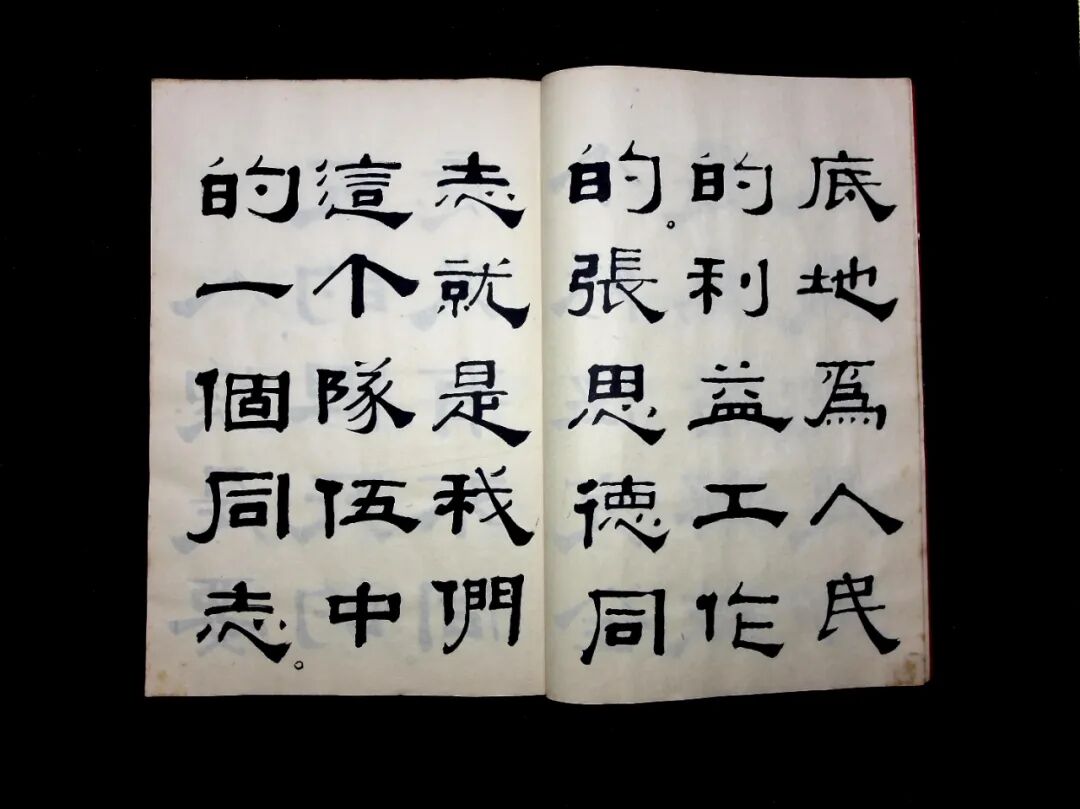 底地爲人民
的利益工作
的。張思德同
志就是我們
這个隊伍中
的一個同志。